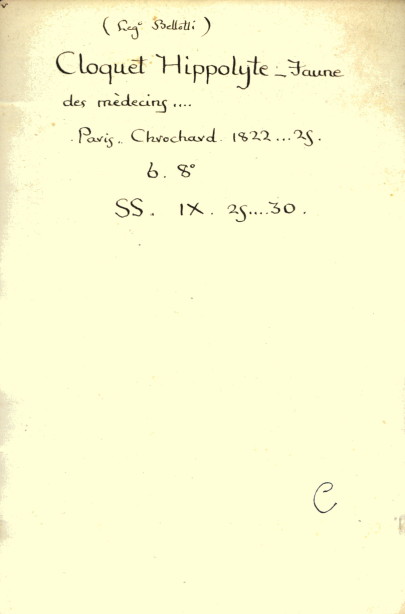 (Leg° Bellotti)
Cloquet Hippolyte - Faune
des mèdecins ....
Paris .. Chrochard. 1822 ... 25.
6. 8°
SS. IX. 25....30.
C